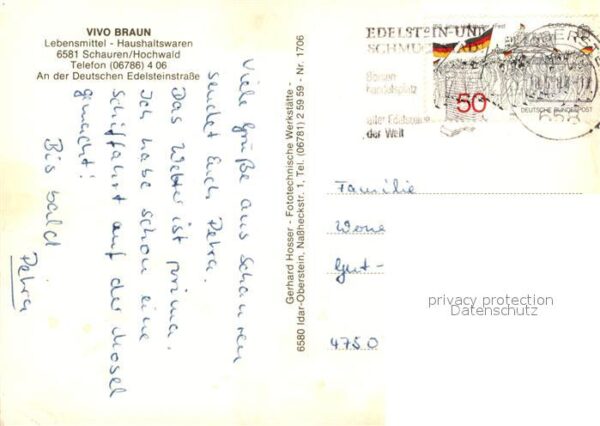 VIVO BRAUN
Lebensmittel - Haushaltswaren
6581 Schauren/Hochwald
Telefon (06786) 4 06
An der Deutschen Edelsteinstraße
Viele Grüße aus Schauren
sendet Euch Petra.
Das Wetter ist prima.
Ich habe schon eine
Schiffahrt auf der Mosel
gemacht!
Bis bald
Petra
Gerhard Hosser - Fototechnische Werkstätte -
6580 Idar-Oberstein, Naßheckstr. 1, Tel. (06781) 2 59 59 - Nr. 1706
EDELSTEIN-UND
SCHMUCK
Börsen
handelsplatz
aller Edelsteine
der Welt
50
DEUTSCHE BUNDESPOST
Familie
Gut-
4750
privacy protection
Datenschutz